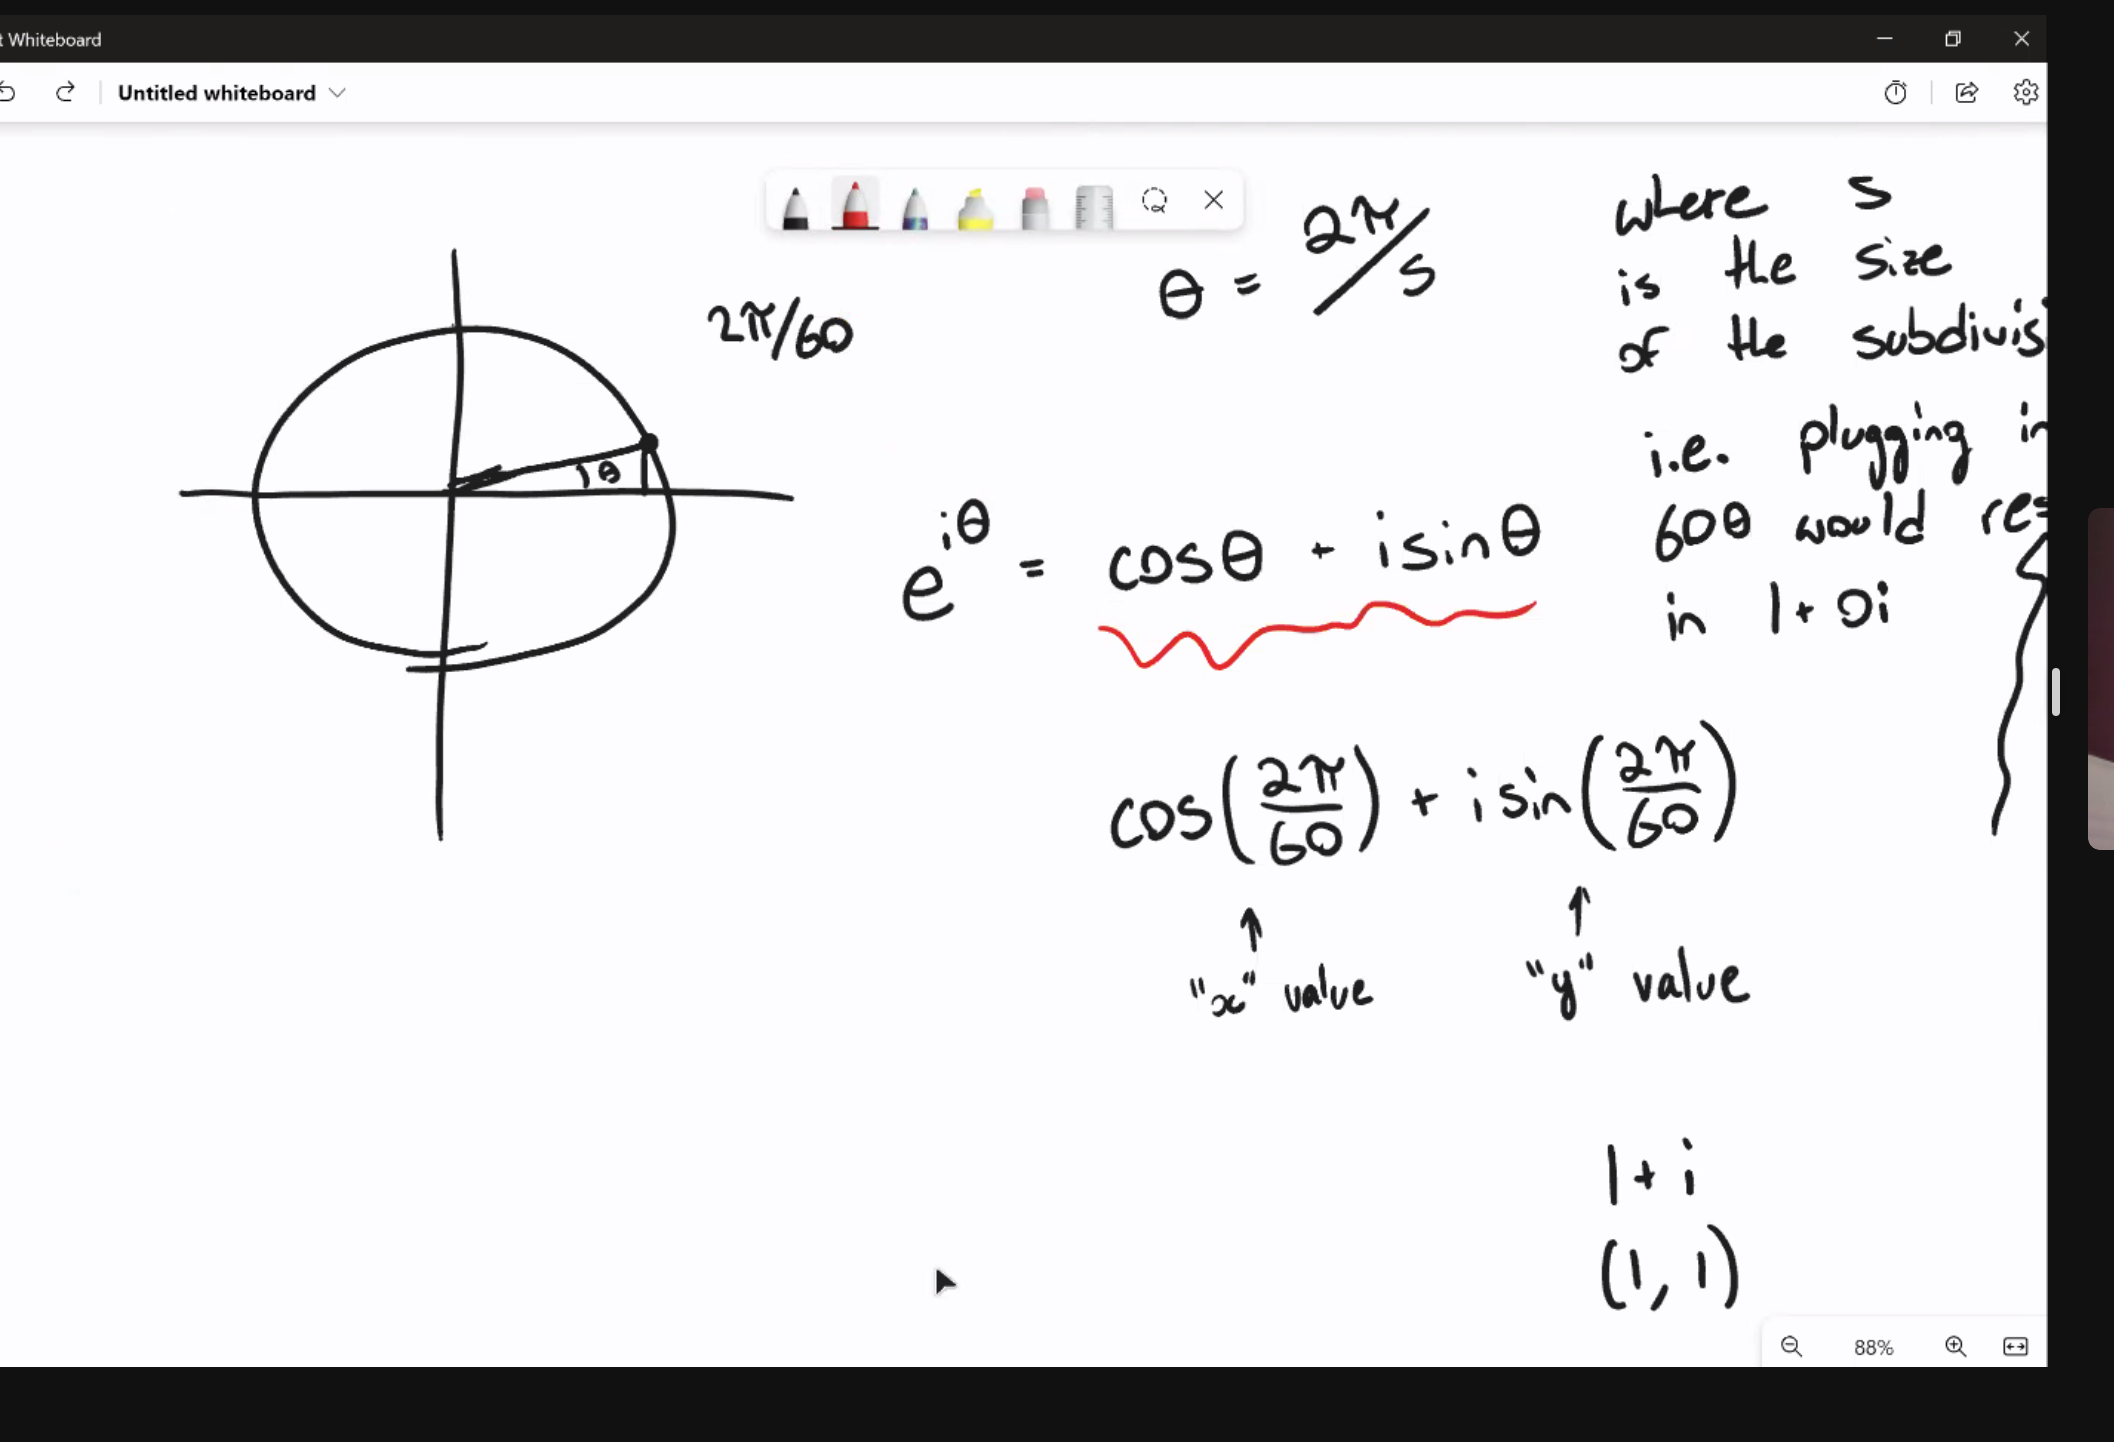 t Whiteboard
Untitled whiteboard
2π/60
θ = 2π/s
where s
is the size
of the subdivis
i.e. plugging in
60θ would res
in 1 + 0i
θ
e^{iθ} = cosθ + i sinθ
cos(2π/60) + i sin(2π/60)
"x" value "y" value
1 + i
(1, 1)
88%